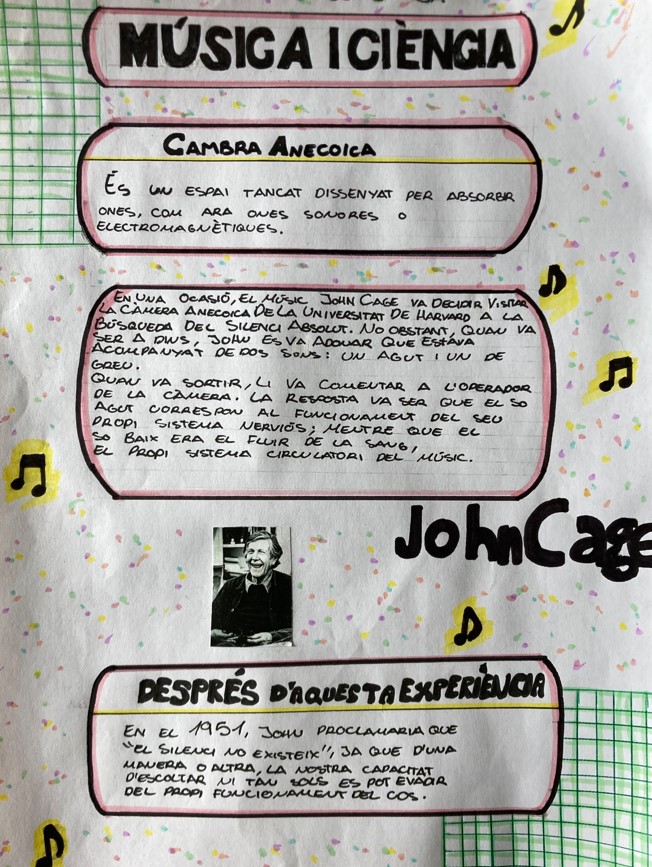 MÚSICA I CIÈNCIA
CAMBRA ANECOICA
ÉS UN ESPAI TANCAT DISSENYAT PER ABSORBIR
ONES, COM ARA ONES SONORES O
ELECTROMAGNÈTIQUES.
EN UNA OCASIÓ, EL MÚSIC JOHN CAGE VA DECIDIR VISITAR
LA CÀMERA ANECOICA DE LA UNIVERSITAT DE HARVARD A LA
BÚSQUEDA DEL SILENCI ABSOLUT. NO OBSTANT, QUAN VA
SER A DINS, JOHN ES VA ADONAR QUE ESTAVA
ACOMPANYAT DE DOS SONS: UN AGUT I UN DE
GREU.
QUAN VA SORTIR, LI VA COMENTAR A L'OPERADOR
DE LA CÀMERA. LA RESPOSTA VA SER QUE EL SO
AGUT CORRESPON AL FUNCIONAMENT DEL SEU
PROPI SISTEMA NERVIÓS; MENTRE QUE EL
SO BAIX ERA EL FLUIR DE LA SANG,
EL PROPI SISTEMA CIRCULATORI DEL MÚSIC.
John Cage
DESPRÉS D'AQUESTA EXPERIÈNCIA
EN EL 1951, JOHN PROCLAMARIA QUE
"EL SILENCI NO EXISTEIX", JA QUE D'UNA
MANERA O ALTRA, LA NOSTRA CAPACITAT
D'ESCOLTAR NI TAN SOLS ES POT EVADIR
DEL PROPI FUNCIONAMENT DEL COS.